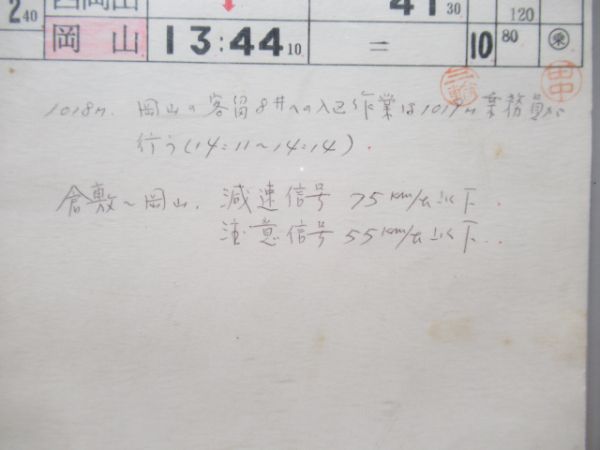 2 40 西岡山 ↓ 41 30 120
岡山 13:44 10 = 10 80 乗
三宅 田中
1018M. 岡山の客留8井への入区作業は1019M乗務員が
行う(14:11~14:14).
倉敷~岡山. 減速信号 75km/h以下.
注意信号 55km/h以下.